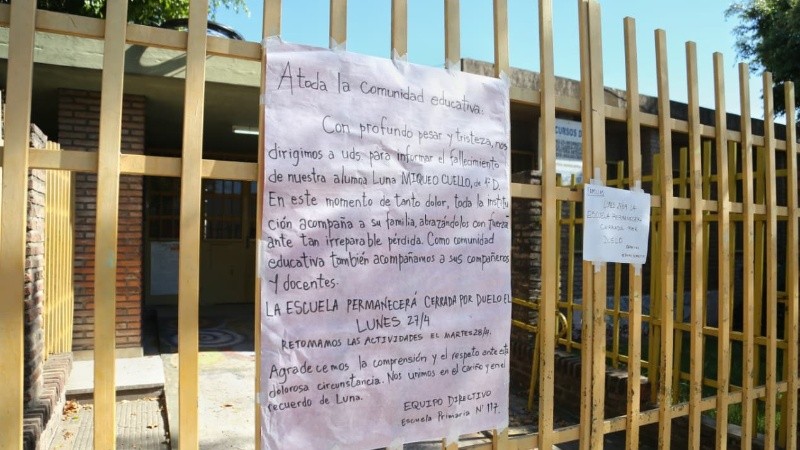 A toda la comunidad educativa:
Con profundo pesar y tristeza, nos
dirigimos a uds para informar el fallecimiento
de nuestra alumna Luna MIQUEO CUELLO, de 4° D.
En este momento de tanto dolor, toda la institu
ción acompaña a su familia, abrazándolos con fuerza
ante tan irreparable pérdida. Como comunidad
educativa también acompañamos a sus compañeros
y docentes.
LA ESCUELA PERMANECERÁ CERRADA POR DUELO EL
LUNES 27/4
RETOMAMOS LAS ACTIVIDADES EL MARTES 28/4.
Agradecemos la comprensión y el respeto ante esta
dolorosa circunstancia. Nos unimos en el cariño y en el
recuerdo de Luna.
EQUIPO DIRECTIVO
Escuela Primaria N° 117.
CURSOS D
LUNES 27/4 LA
ESCUELA PERMANECERÁ
CERRADA POR
DUELO